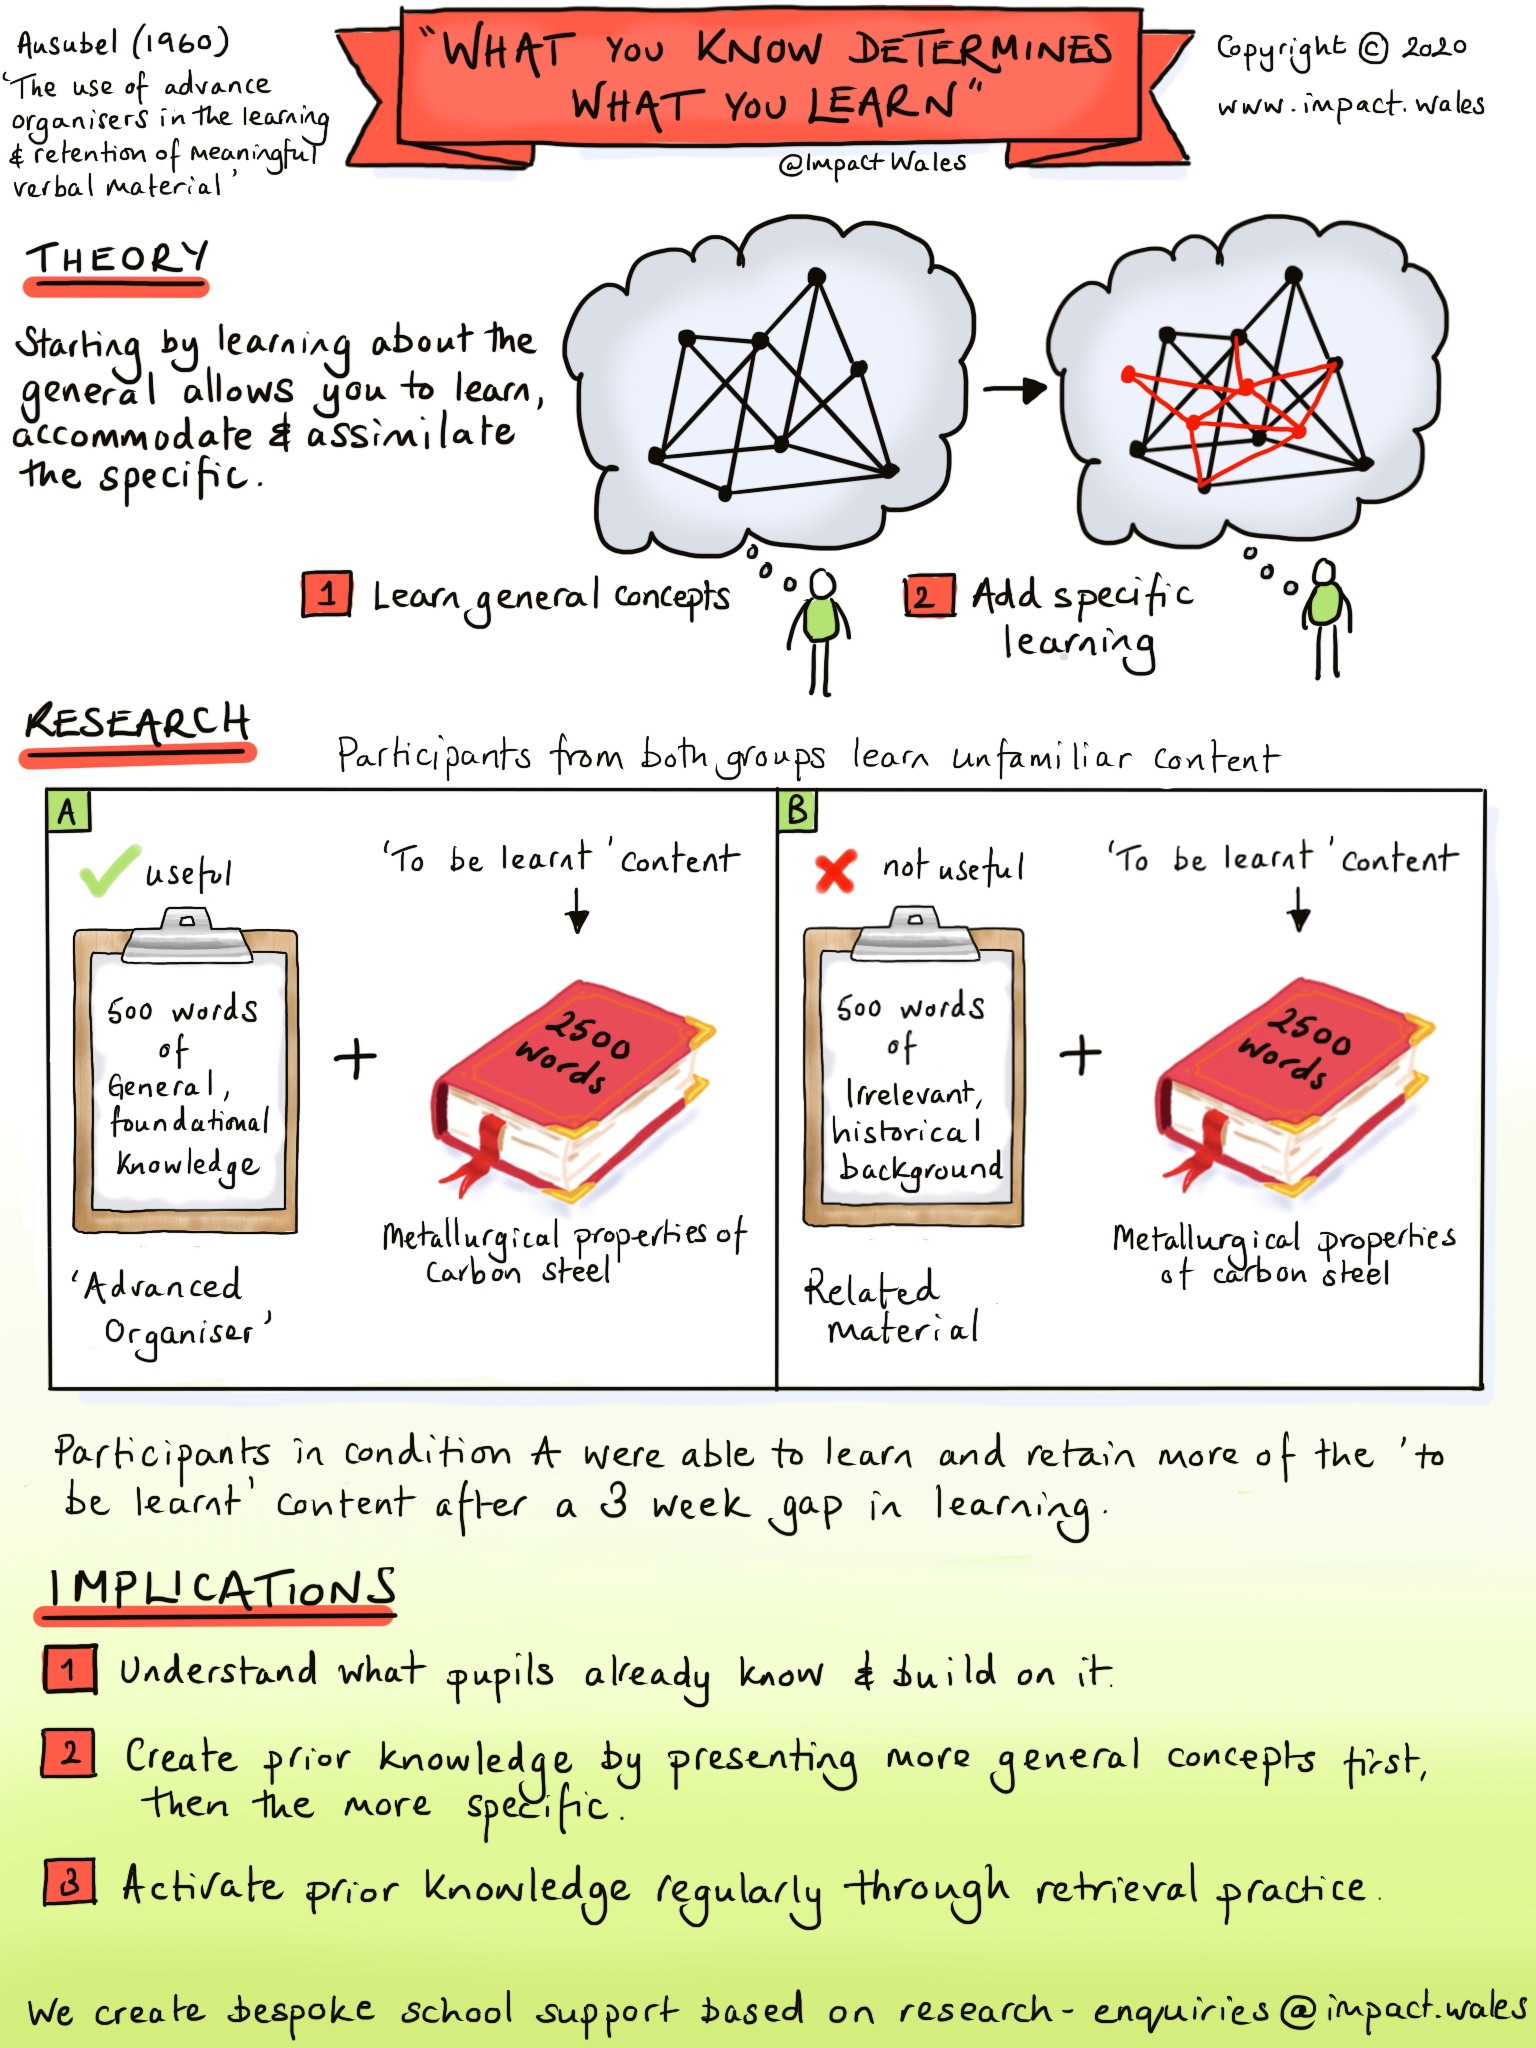 Ausubel (1960)
'The use of advance
organisers in the learning
& retention of meaningful
verbal material'
"WHAT YOU KNOW DETERMINES
WHAT YOU LEARN"
@Impact Wales
Copyright © 2020
www.impact.wales
THEORY
Starting by learning about the
general allows you to learn,
accommodate & assimilate
the specific.
1 Learn general concepts
2 Add specific
learning
RESEARCH
Participants from both groups learn unfamiliar content
A
useful
'To be learnt' content
500 words
of
General,
foundational
knowledge
+
2500
words
'Advanced
Organiser'
Metallurgical properties of
carbon steel
B
not useful
'To be learnt' content
500 words
of
Irrelevant,
historical
background
+
2500
words
Related
material
Metallurgical properties
of carbon steel
Participants in condition A were able to learn and retain more of the 'to
be learnt' content after a 3 week gap in learning.
IMPLICATIONS
1 Understand what pupils already know & build on it.
2 Create prior knowledge by presenting more general concepts first,
then the more specific.
3 Activate prior knowledge regularly through retrieval practice.
We create bespoke school support based on research - enquiries@impact.wales